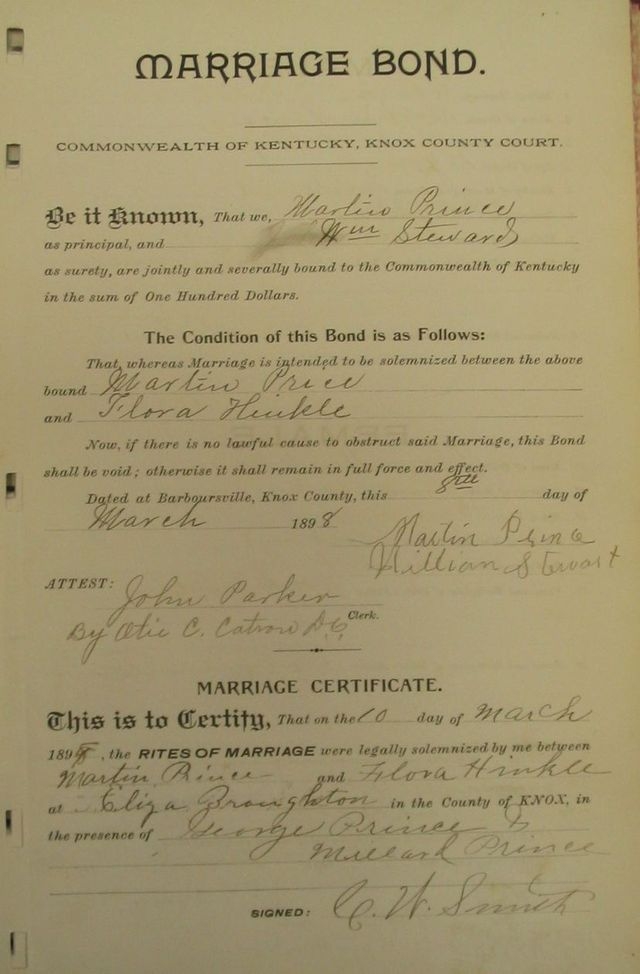 MARRIAGE BOND.
COMMONWEALTH OF KENTUCKY, KNOX COUNTY COURT.
Be it Known, That we, Martin Prince
as principal, and Wm Steward
as surety, are jointly and severally bound to the Commonwealth of Kentucky
in the sum of One Hundred Dollars.
The Condition of this Bond is as Follows:
That, whereas Marriage is intended to be solemnized between the above
bound Martin Price
and Flora Hinkle
Now, if there is no lawful cause to obstruct said Marriage, this Bond
shall be void; otherwise it shall remain in full force and effect.
Dated at Barboursville, Knox County, this 8th day of
March 1898
Martin Prince
William Stewart
ATTEST: John Parker
Clerk.
By Otie C. Catron D.C.
MARRIAGE CERTIFICATE.
This is to Certify, That on the 10 day of March
1898, the RITES OF MARRIAGE were legally solemnized by me between
Martin Prince and Flora Hinkle
at Eliza Broughton in the County of KNOX, in
the presence of George Prince &
Millard Prince
SIGNED: C. W. Smith